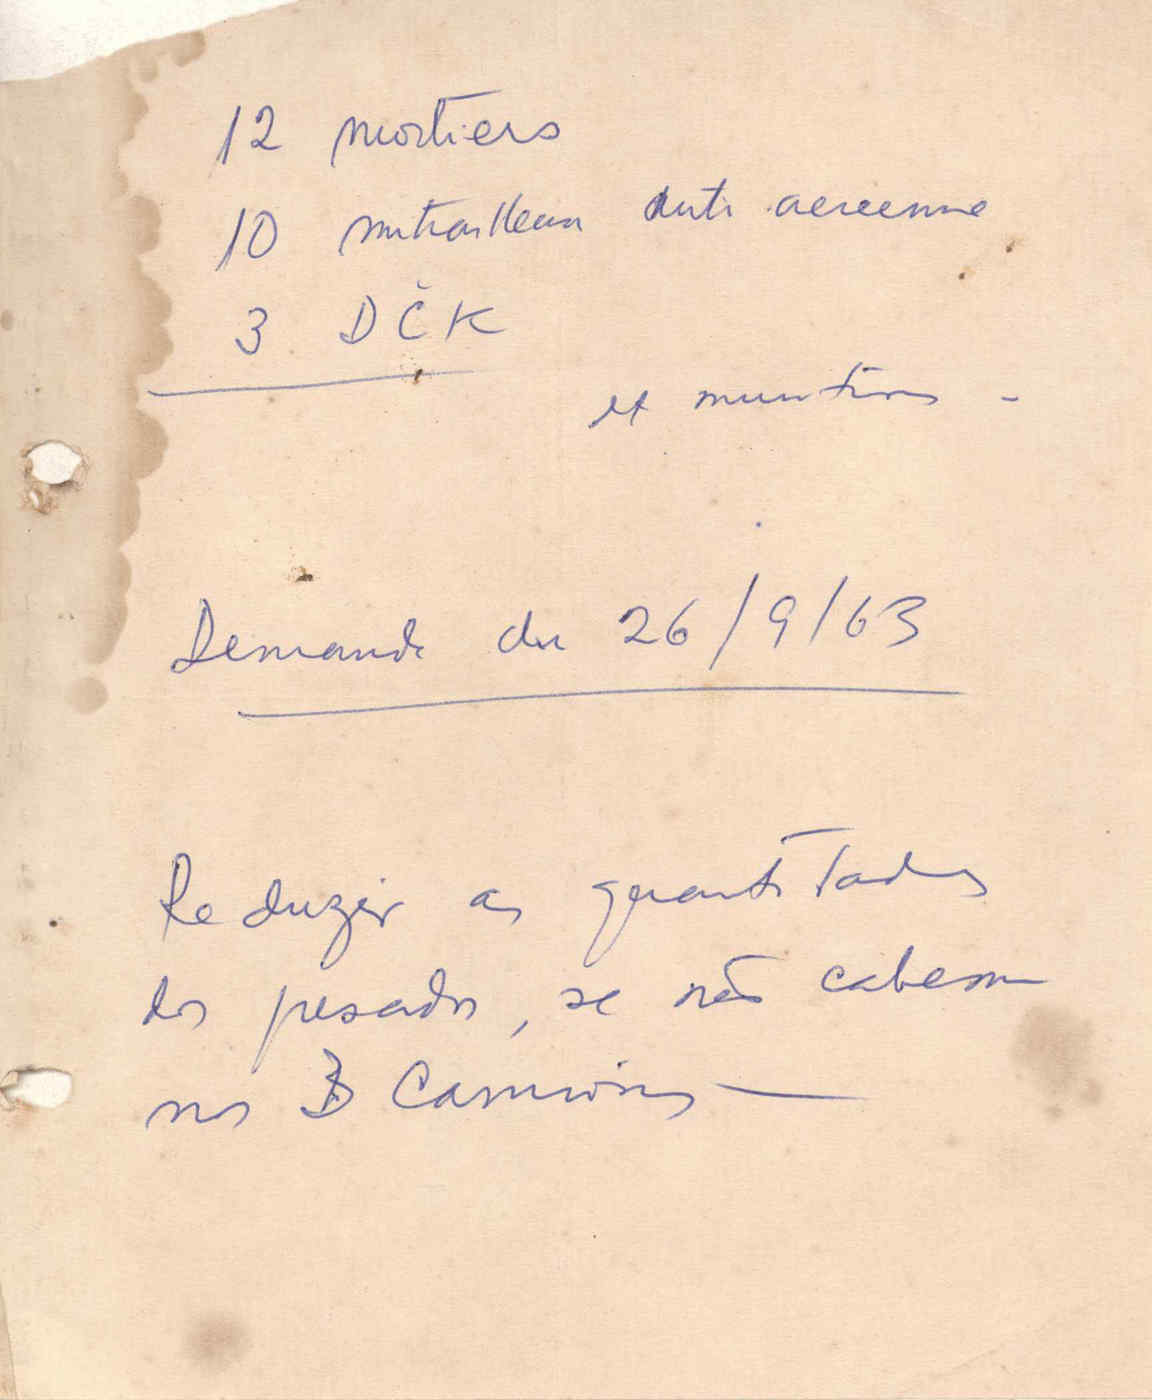 12 mortiers
10 mitrailleur anti aereenne
3 DČK
et munitions -
Demande du 26/9/63
Reduzir as quantitades
dos pesados, se não cabem
nos 3 Camions —